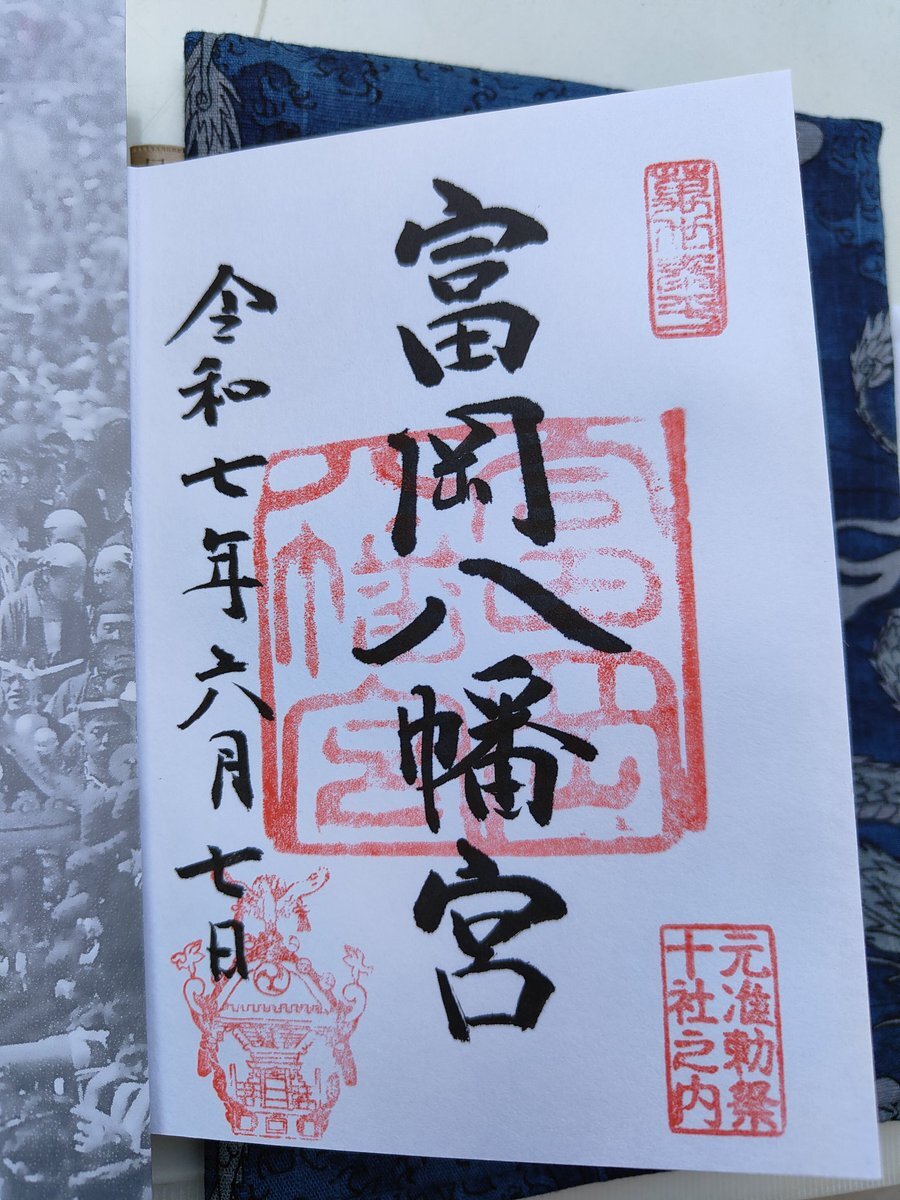 元准勅祭
十社之内
富岡八幡宮
富岡
八幡宮
令和七年六月七日